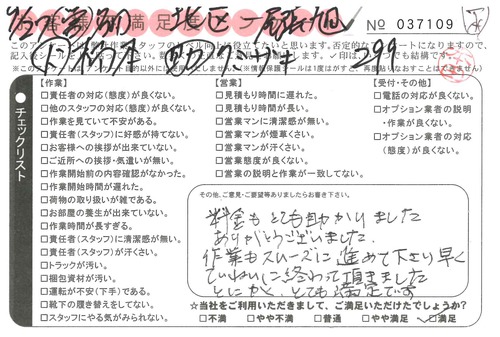 お客様満足度
No 037109
地区
299
【作業】
□責任者の対応(態度)が良くない。
□他のスタッフの対応(態度)が良くない。
□作業を見ていて不安がある。
□責任者(スタッフ)に好感が持てない。
□お客様への挨拶が出来ていない。
□ご近所への挨拶・気遣いが無い。
□作業開始前の内容確認がなかった。
□作業開始時間が遅れた。
□荷物の取り扱いが雑である。
□お部屋の養生が出来ていない。
□作業時間が長すぎる。
□責任者(スタッフ)に清潔感が無い。
□責任者(スタッフ)が汗くさい。
□トラックが汚い。
□梱包資材が汚い。
□運転が不安(下手)である。
□靴下の履き替えをしてない。
□スタッフにやる気がみられない。
【営業】
□見積もり時間に遅れた。
□見積もり時間が長い。
□営業マンに清潔感が無い。
□営業マンが煙草くさい。
□営業マンが汗くさい。
□営業態度が良くない。
□営業の説明と作業が一致してない。
【受付・その他】
□電話の対応が良くない。
□オプション業者の説明
・作業が良くない。
□オプション業者の対応
(態度)が良くない。
チェックリスト
その他、ご意見・ご要望等ありましたらお書き下さい。
料金もとても助かりました
ありがとうございました。
作業もスムーズに進めて下さり早く
ていねいに終わって頂きました
とにかく、とても満足です
☆当社をご利用いただきまして、ご満足いただけたでしょうか?
□不満 □やや不満 □普通 □やや満足 □満足